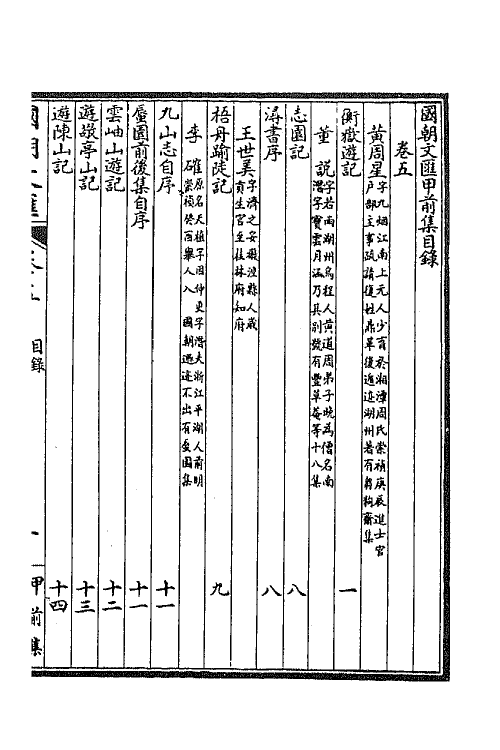 國朝文匯甲前集目錄
卷五
黃周星 字九烟江南上元人少育於湘潭周氏崇禎庚辰進士官
戶部主事疏請復姓鼎革後遁迹湖州著有芻狗齋集
衡嶽遊記 一
董 說 字若雨湖州烏程人黃道周弟子晚為僧名南
潛字寶雲月涵乃其別號有豐草菴等十八集
志園記 八
潯書序 八
王世美 字濟之安徽涇縣人歲
貢生官至桂林府知府
梧丹踰陡記 九
李 確 原名天植字因仲更字潛夫浙江平湖人前明
崇禎癸酉舉人入 國朝遯迹不出有蜃園集
九山志自序 十一
蜃園前後集自序 十一
雲岫山遊記 十二
遊敬亭山記 十三
遊陳山記 十四
國朝文匯 卷五 目錄 一 甲前集